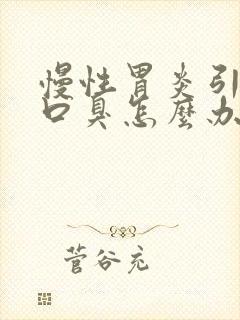 慢性胃炎引
口臭怎麼办
菅谷充